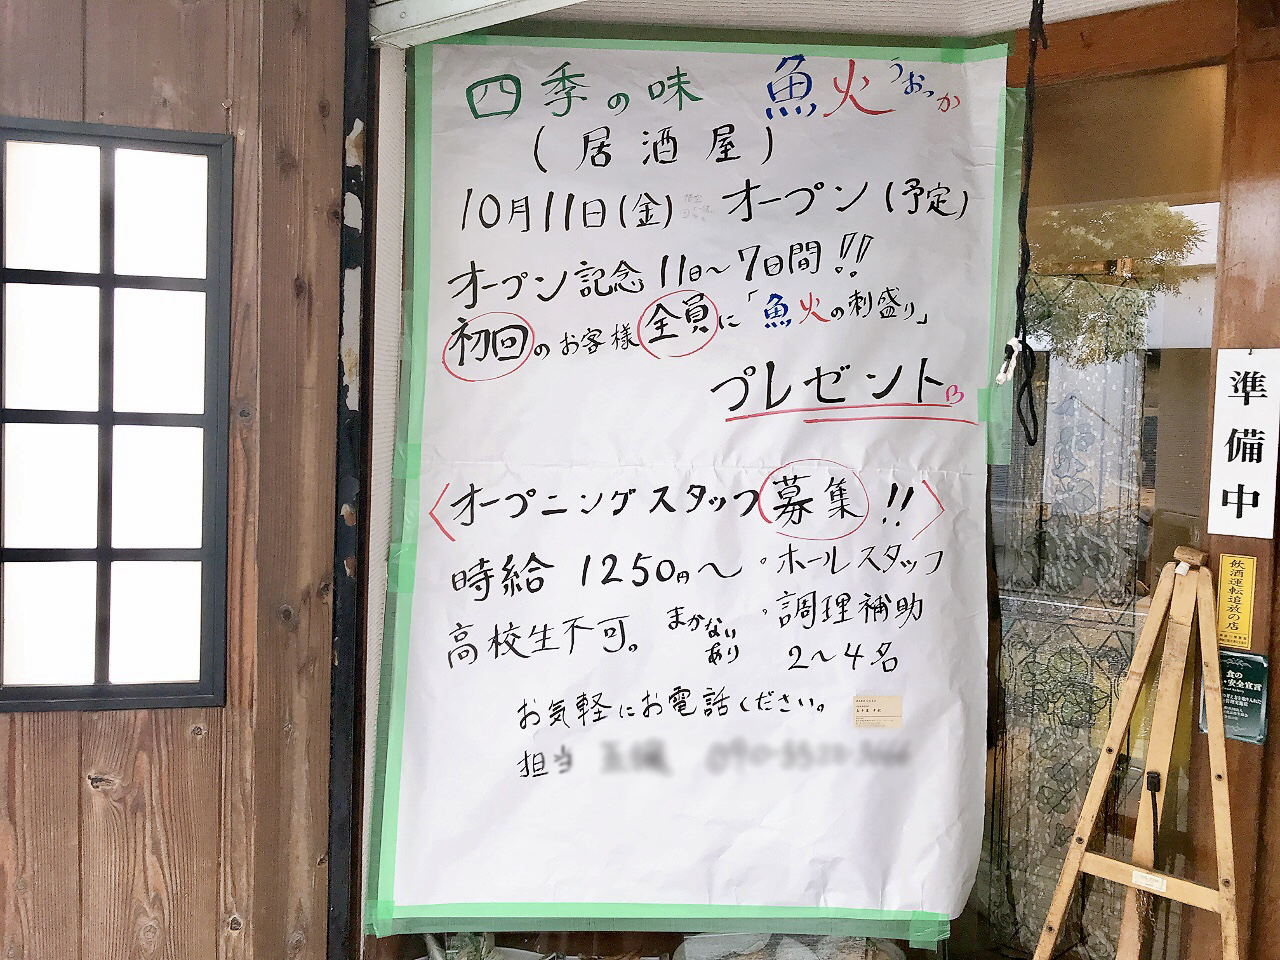 四季の味 魚火 うおっか
(居酒屋)
10月11日(金) オープン(予定)
オープン記念 11日～7日間!!
初回のお客様全員に「魚火の刺盛り」
プレゼント
〈オープニングスタッフ募集!!〉
時給 1250円～ ・ホールスタッフ
高校生不可。 まかないあり ・調理補助
2～4名
お気軽にお電話ください。
担当
準備中
飲酒運転追放の店
食の
安全宣言